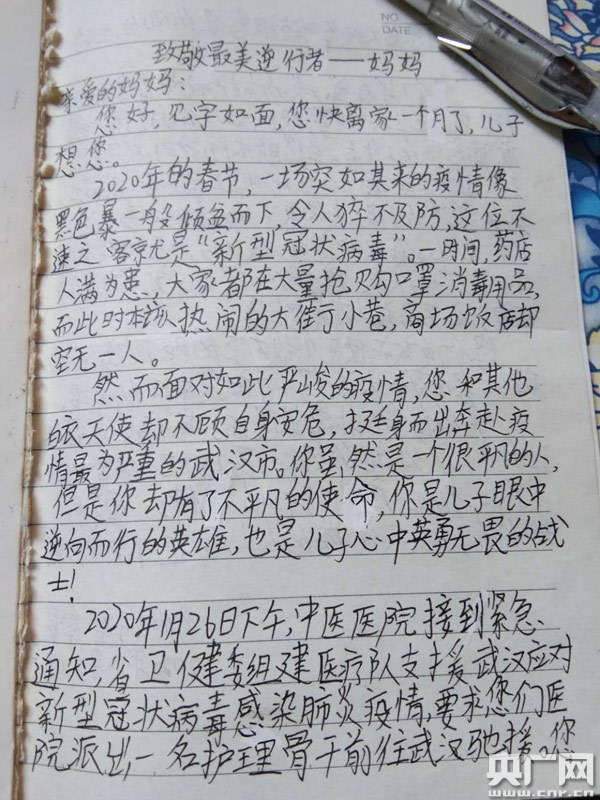 NO.
DATE
致敬最美逆行者——妈妈
亲爱的妈妈：
您好，见字如面，您快离家一个月了，儿子
想您。
2020年的春节，一场突如其来的疫情像
黑色暴一般倾盆而下，令人猝不及防，这位不
速之客就是“新型冠状病毒”。一时间，药店
人满为患，大家都在大量抢购口罩消毒用品，
而此时本该热闹的大街小巷，商场饭店却
空无一人。
然而面对如此严峻的疫情，您和其他
白衣天使却不顾自身安危，挺身而出奔赴疫
情最为严重的武汉市。你虽然是一个很平凡的人，
但是你却有了不平凡的使命，你是儿子眼中
逆向而行的英雄，也是儿子心中英勇无畏的战
士！
2020年1月26日下午，中医医院接到紧急
通知，省卫健委组建医疗队支援武汉应对
新型冠状病毒感染肺炎疫情，要求您们医
院派出一名护理骨干前往武汉驰援。您
央广网
www.cnr.cn